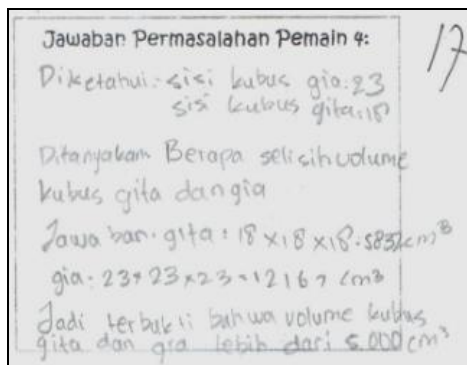 Jawaban Permasalahan Pemain 4:
17
Diketahui: sisi kubus gia: 23
sisi kubus gita: 18
Ditanyakan Berapa selisih volume
kubus gita dan gia
Jawaban. gita: 18 x 18 x 18. 5832 cm³
gia. 23 x 23 x 23 = 12167 cm³
Jadi terbukti bahwa volume kubus
gita dan gia lebih dari 5.000 cm³